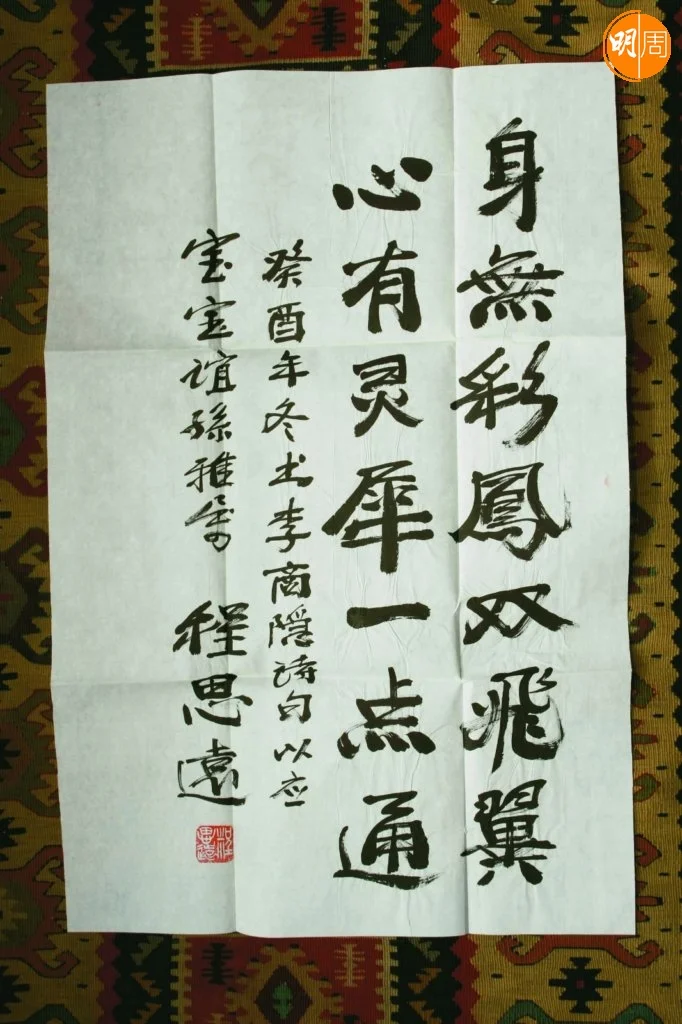 身無彩鳳双飛翼
心有灵犀一点通
癸酉年冬书李商隠詩句以应
宝宝谊孫雅属
程思遠
明周